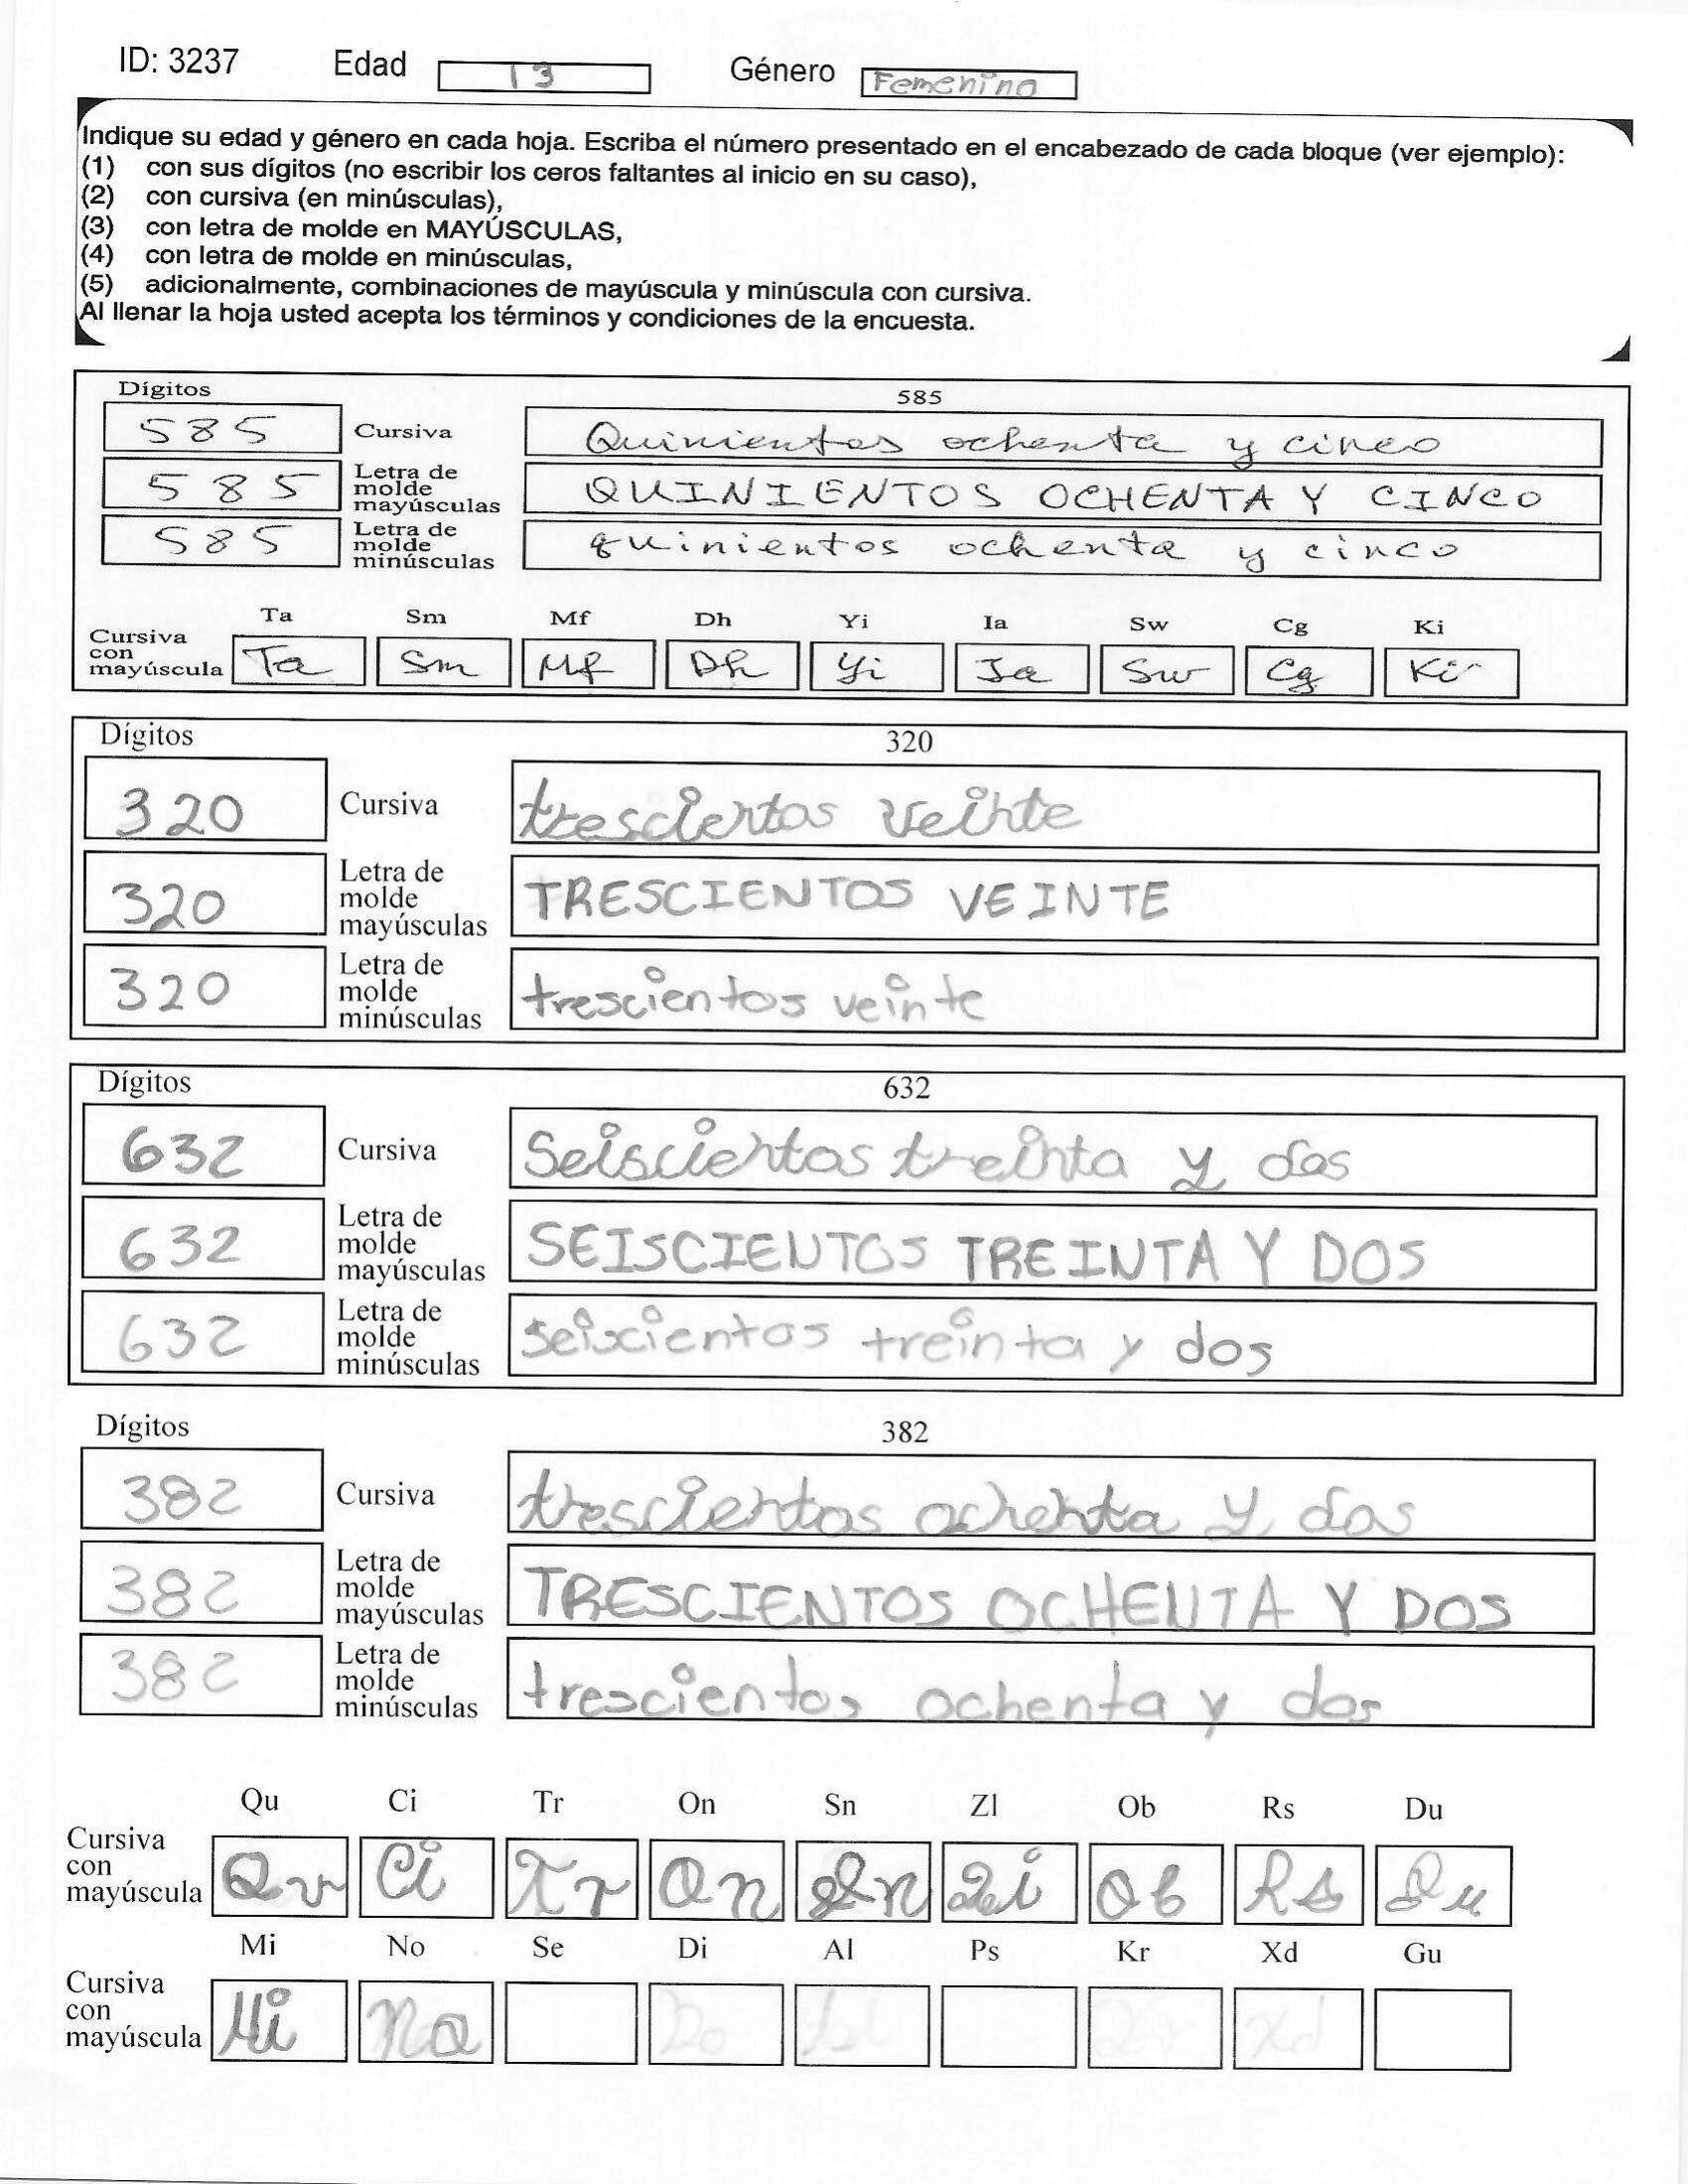 ID: 3237 Edad 13 Género Femenino
Indique su edad y género en cada hoja. Escriba el número presentado en el encabezado de cada bloque (ver ejemplo):
(1) con sus dígitos (no escribir los ceros faltantes al inicio en su caso),
(2) con cursiva (en minúsculas),
(3) con letra de molde en MAYÚSCULAS,
(4) con letra de molde en minúsculas,
(5) adicionalmente, combinaciones de mayúscula y minúscula con cursiva.
Al llenar la hoja usted acepta los términos y condiciones de la encuesta.
Dígitos 585
585 Cursiva Quinientos ochenta y cinco
585 Letra de molde mayúsculas QUINIENTOS OCHENTA Y CINCO
585 Letra de molde minúsculas quinientos ochenta y cinco
Ta Sm Mf Dh Yi Ia Sw Cg Ki
Cursiva con mayúscula Ta Sm Mf Dh Yi Ia Sw Cg Ki
Dígitos 320
320 Cursiva trescientos veinte
320 Letra de molde mayúsculas TRESCIENTOS VEINTE
320 Letra de molde minúsculas trescientos veinte
Dígitos 632
632 Cursiva Seiscientos treinta y dos
632 Letra de molde mayúsculas SEISCIENTOS TREINTA Y DOS
632 Letra de molde minúsculas seiscientos treinta y dos
Dígitos 382
382 Cursiva trescientos ochenta y dos
382 Letra de molde mayúsculas TRESCIENTOS OCHENTA Y DOS
382 Letra de molde minúsculas trescientos ochenta y dos
Qu Ci Tr On Sn Zl Ob Rs Du
Cursiva con mayúscula Qu Ci Tr On Sn Zi Ob Rs Du
Mi No Se Di Al Ps Kr Xd Gu
Cursiva con mayúscula Mi No Xd